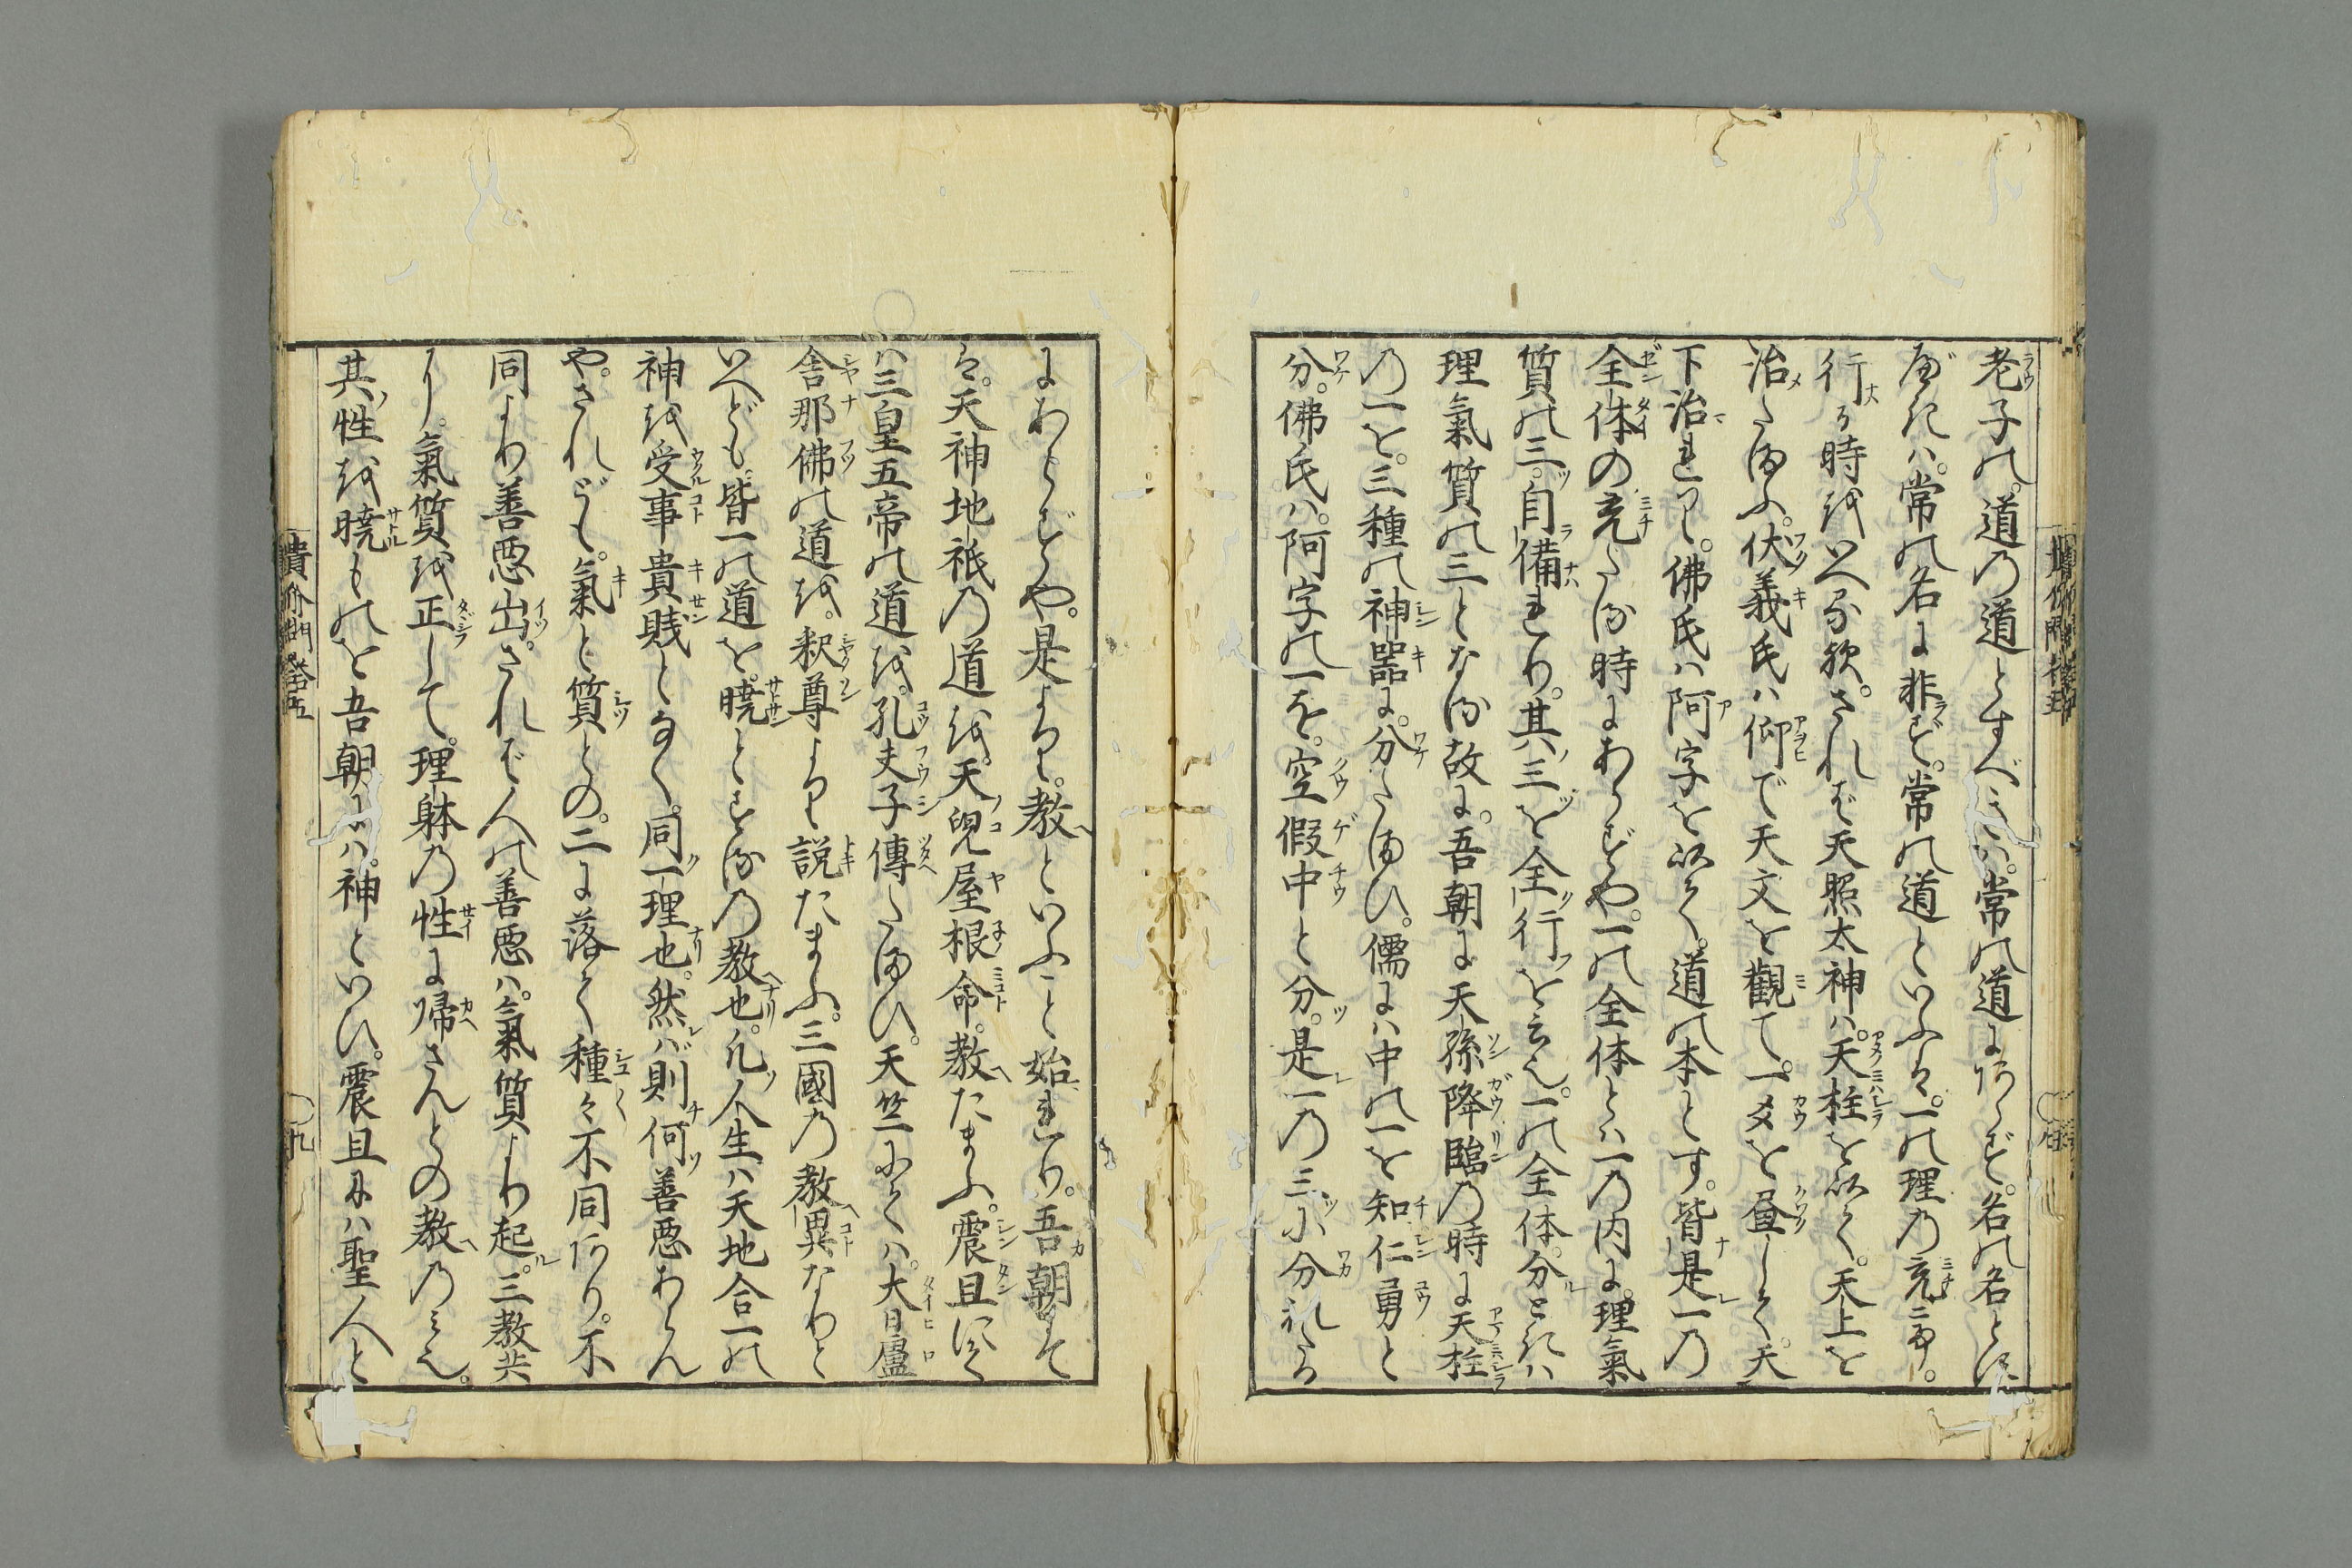 老子の。道の道とすべきハ。常の道にあらず。名の名とす
べきハ。常の名に非ず。常の道といふは。一の理の充ニ而。
行るゝ時をいへる歟。されば天照太神ハ。天柱を以て。天上を
治たまふ。伏義氏ハ仰で天文を觀て。一爻を畳して。天
下治れり。佛氏ハ阿字を以て。道の本とす。皆是一の
全体の充たる時にあらずや。一の全体とハ一の内に。理氣
質の三。自備れり。其三を全行を云也。一の全体分ときハ
理氣質の三となる故に。吾朝に天孫降臨の時に天柱
の一を。三種の神器に。分たまひ。儒にハ中の一を知仁勇と
分。佛氏ハ。阿字の一を。空假中と分。是一の三に分れたる
にあらずや。是よりして。教といふこと始れり。吾朝にて
は。天神地祇の道を。天兒屋根命。教たまふ。震旦にて
ハ三皇五帝の道を。孔夫子傳たまひ。天竺にてハ。大日盧
舎那佛の道を。釈尊よりして説たまふ。三國の教異なりと
いへども。皆一の道を。暁とする の教也。凡人生ハ天地合一の
神を受事貴賤となく。同一理也。然バ則何善悪あらん
や。されども。氣と質との。二に落て種々不同あり。不
同より善悪出。されば人の善悪ハ。氣質より起。三教共
に。氣質を正して。理躰の性に帰さんとの教のミ也。
其性を暁ものを吾朝にハ。神といひ。震旦にハ聖人と